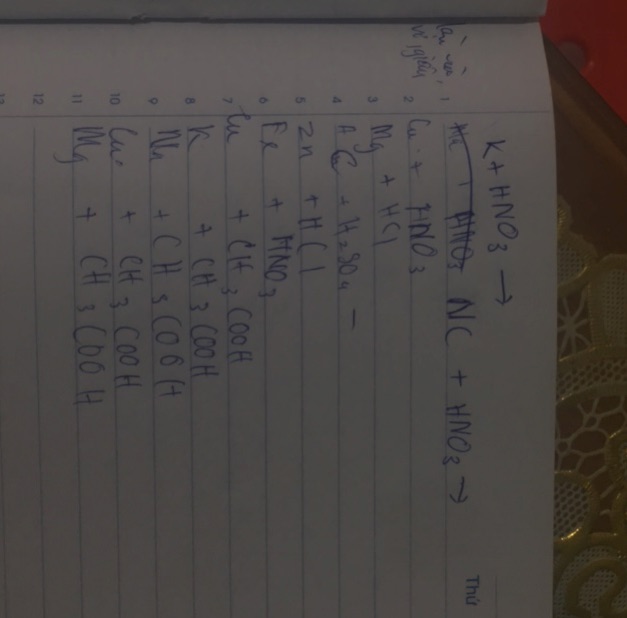 K + HNO3 →
NC + HNO3 →
Cu + HNO3
Mg + HCl
+ H2SO4 –
Zn + HCl
Fe + HNO3
Cu + CH3COOH
K + CH3COOH
Na + CH3COOH
Cu + CH3COOH
Mg + CH3COOH
Thứ
1
2
3
4
5
6
7
8
9
10
11
12